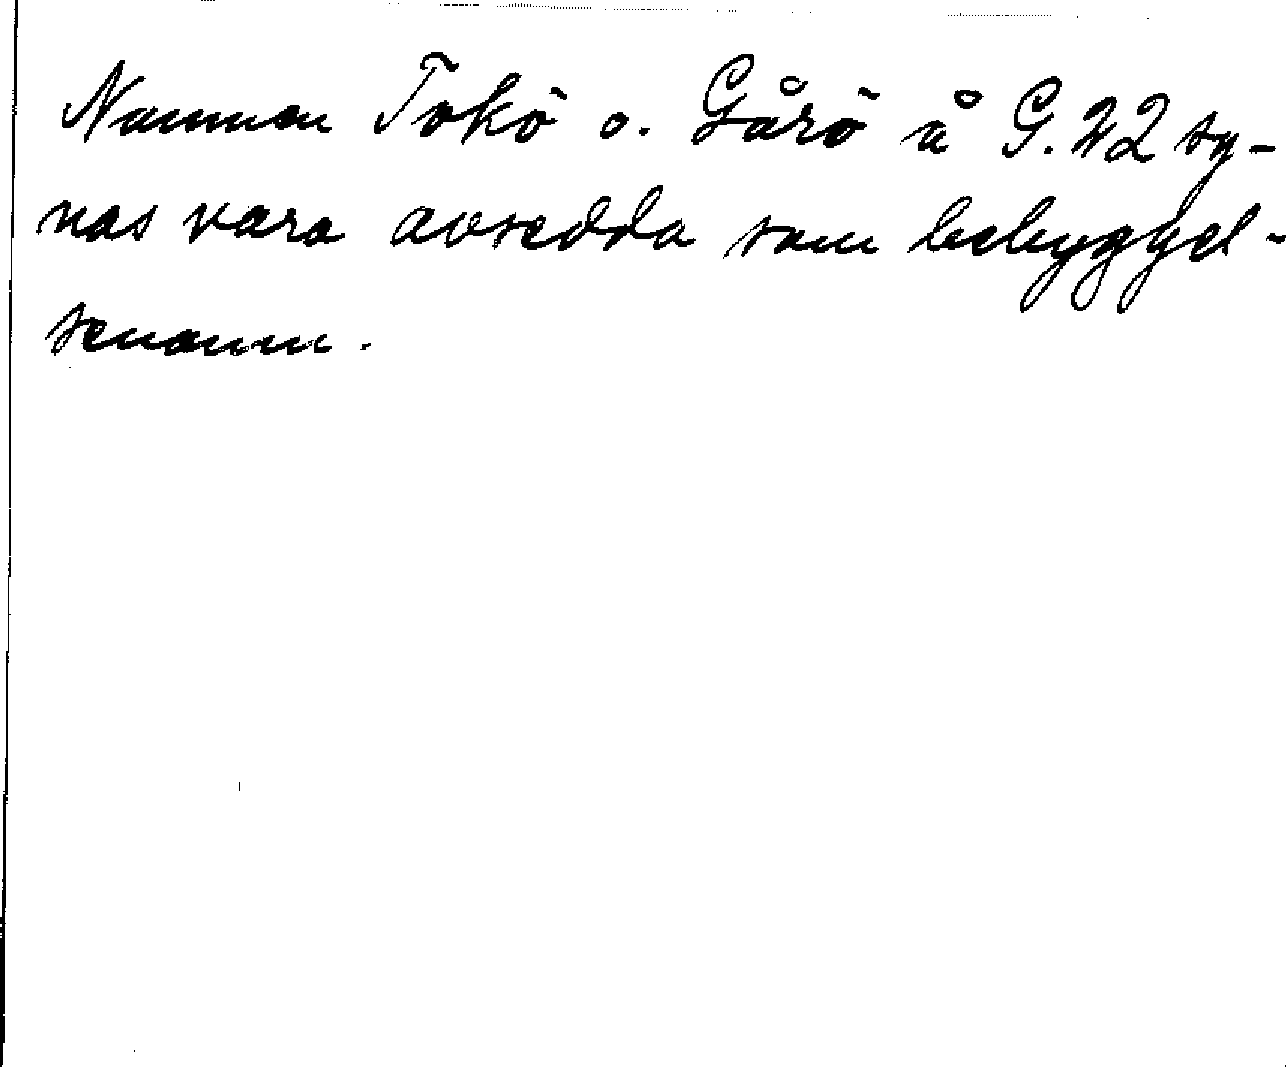 Namnen Tokö o. Gårö å G. 22 sy-
nas vara avsedda som bebyggel-
senamn.